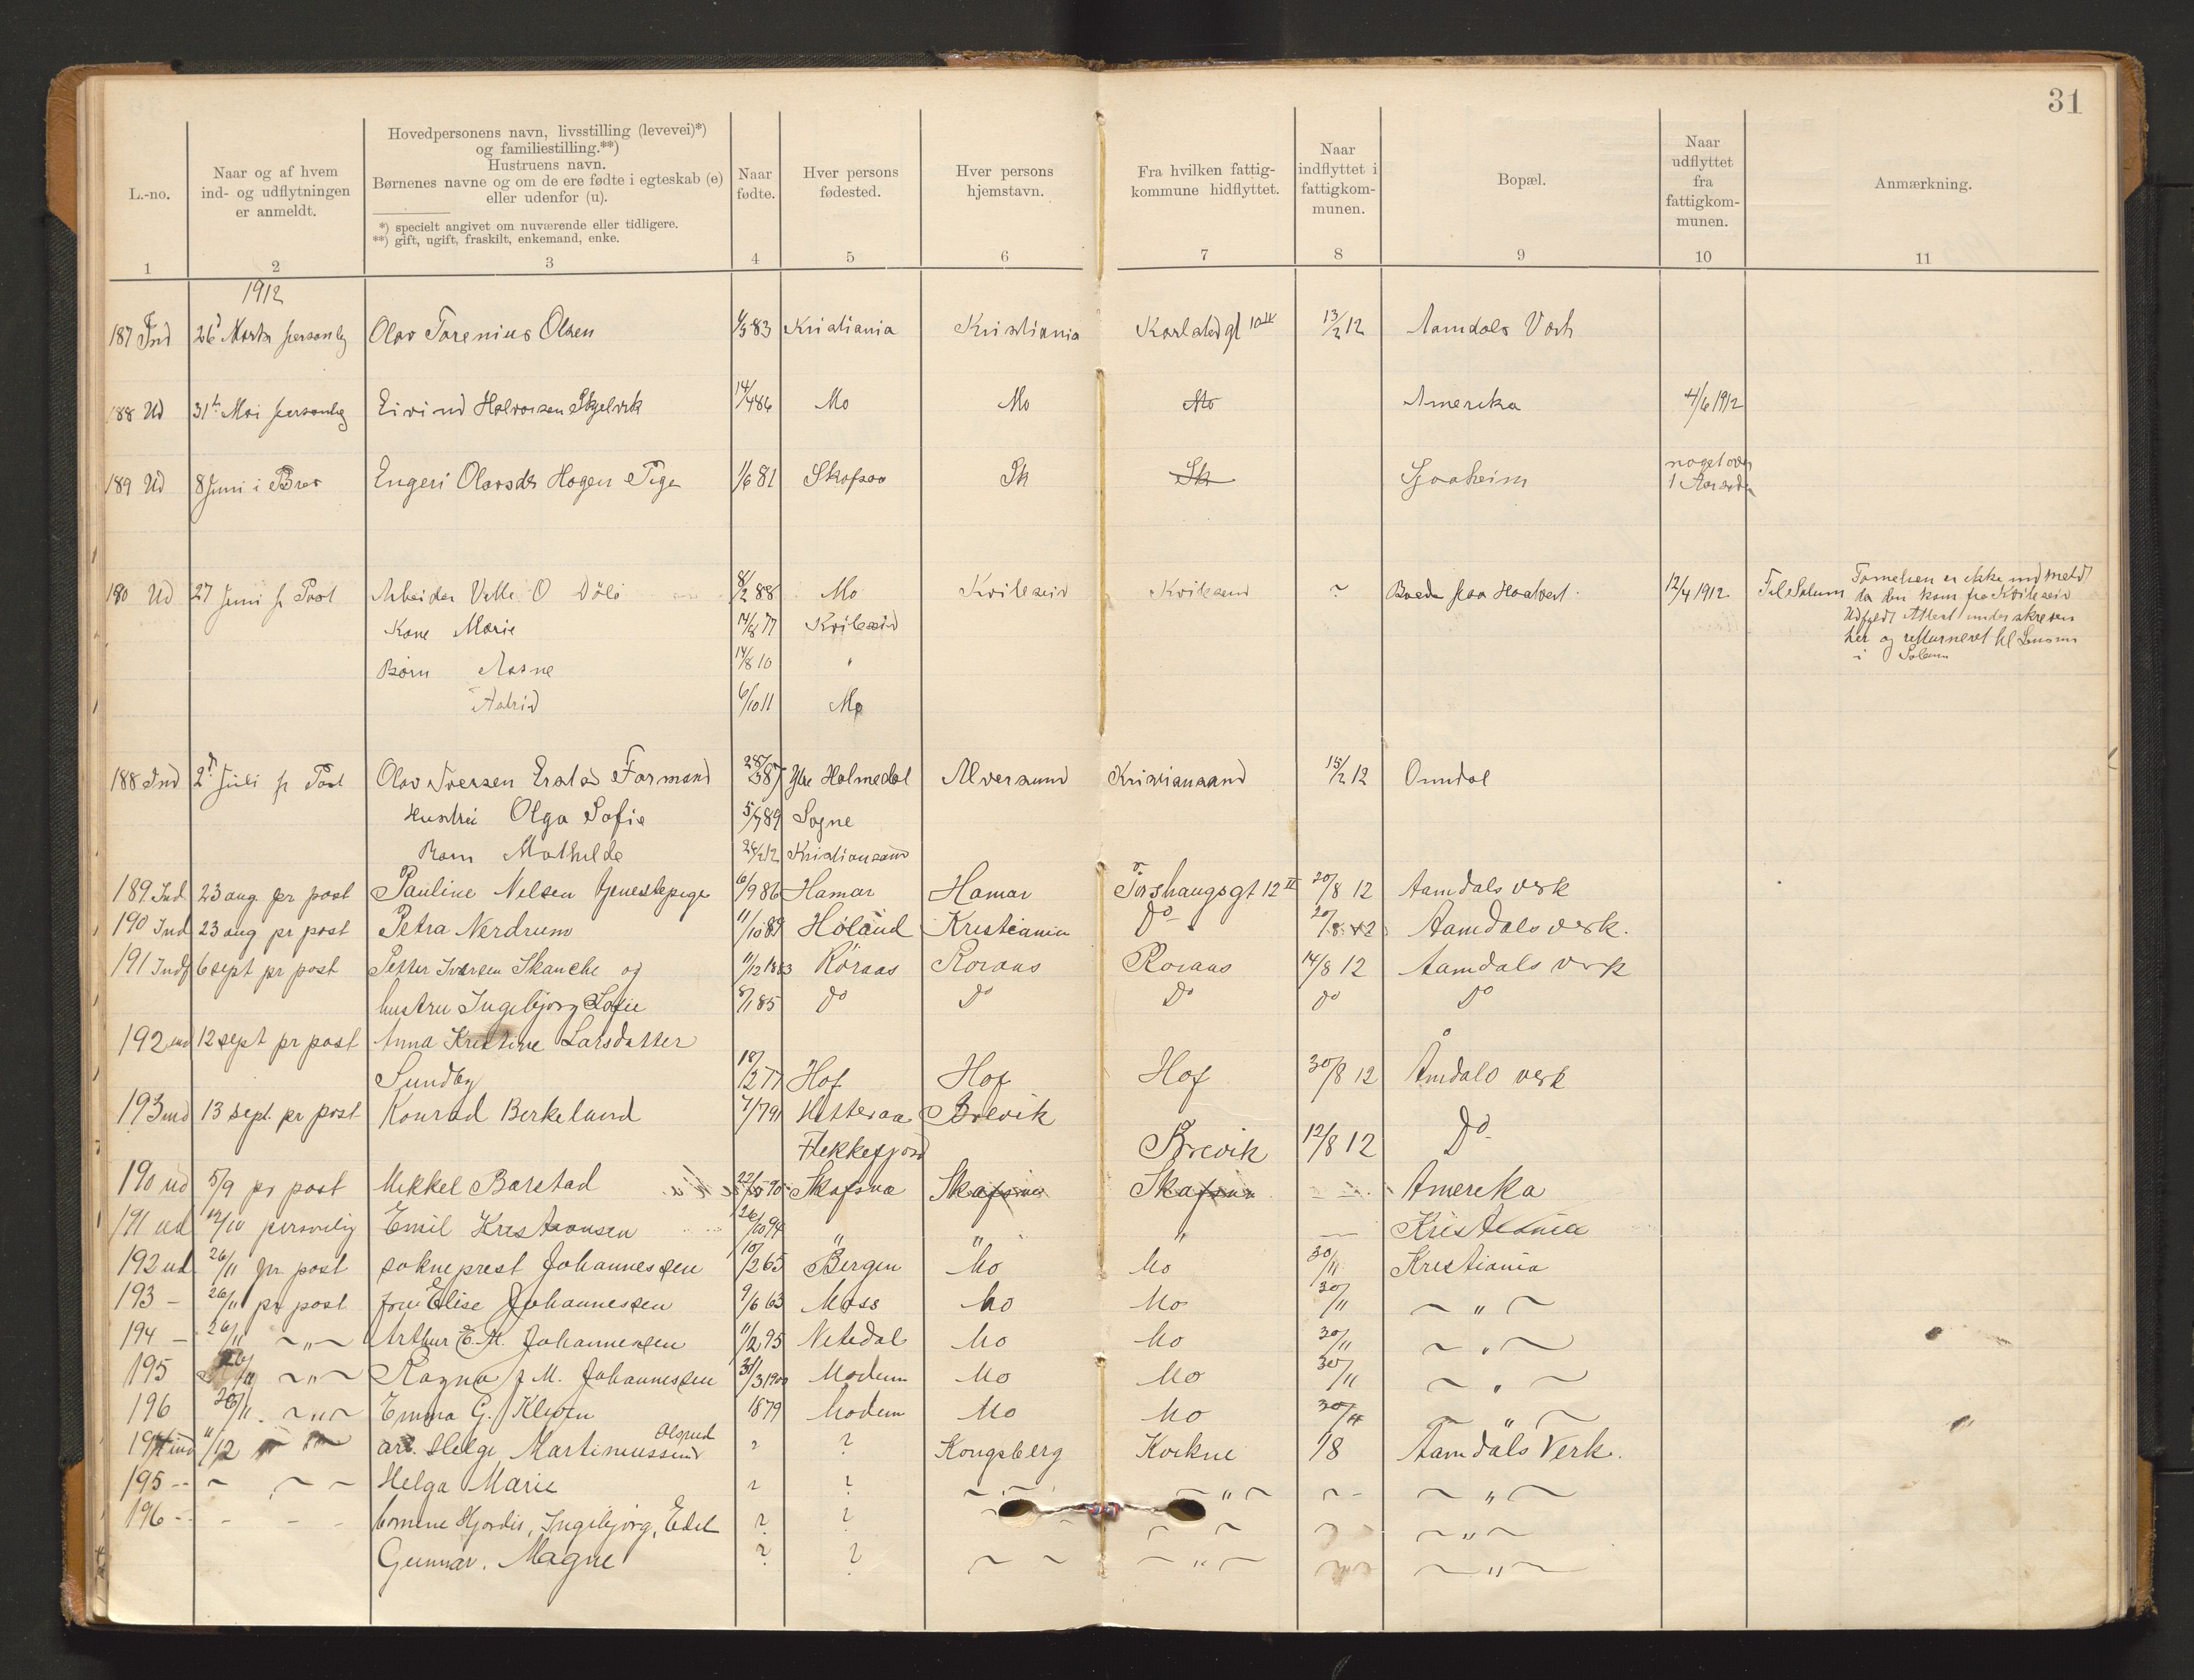 31
L.-no.
Naar og af hvem ind- og udflytningen er anmeldt.
Hovedpersonens navn, livsstilling (levevei)*) og familiestilling.**)
Hustruens navn.
Børnenes navne og om de ere fødte i egteskab (e) eller udenfor (u).
*) specielt angivet om nuværende eller tidligere.
**) gift, ugift, fraskilt, enkemand, enke.
Naar fødte.
Hver persons fødested.
Hver persons hjemstavn.
Fra hvilken fattigkommune hidflyttet.
Naar indflyttet i fattigkommunen.
Bopæl.
Naar udflyttet fra fattigkommunen.
Anmærkning.
1 2 3 4 5 6 7 8 9 10 11
1912
187 Ind 26 Marts personlig Olav Torenius Olsen 83 Kristiania Kristiania Karlstadgt 10 13/2 12 Aamdals Værk
188 Ud 31te Mai personlig Eivind Halvorsen Skjelvik 14/4 86 Mo Mo Mo Amerika 4/6 1912
189 Ud 8 Juni i Brev Engeri Olavsdr Hagen Pige 1/6 81 Skafsaa Sk Sk Sjoaheim noget over 1 Aar siden
180 Ud 27 Juni pr Post Arbeider Vetle O Döli 8/2 88 Mo Kviteseid Kviteseid ~ Boede paa Hoslvert 12/4 1912 Til Solum Famelien er ikke indmeldt
da den kom fra Kviteseid
Udfyldt Attest underskreven
her og returneret til Lensm
i Solum
Kone Marie 14/8 77 Kviteseid
Børn Aasne 14/8 10 "
Astrid 6/10 11 Mo
188 Ind 2 Juli pr Post Olav Iversen Erstad Formand 28/3 87 Ytre Holmedal Alversund Kristiansand 15/2 12 Omdal
Hustru Olga Sofie 5/7 89 Sogne
Barn Mathilde 24/2 12 Kristiansand
189 Ind 23 aug pr post Pauline Nelsen tjenestepige 6/9 86 Hamar Hamar Torshaugsgt 12 II 20/8 12 Aamdals verk
190 Ind 23 aug pr post Petra Nerdrum 11/10 89 Höland Kristiania Do 20/8 12 Aamdals verk.
191 Indf 6 sept pr post Petter Iversen Skanche og 11/12 1883 Röraas Roraas Roraas 14/8 12 Aamdals verk
hustru Ingebjørg Sofie 8/1 85 Do Do Do Do Do
192 ind 12 sept pr post Anna Kristine Larsdatter
Sundby 18/2 77 Hof Hof Hof 30/8 12 Åmdals verk
193 ind 13 sept. pr post Konrad Berkeland 7/1 79 Hitteraa Brevik
Flekkefjord Brevik 12/8 12 Do
190 ud 5/9 pr post Mikkel Barstad 22/5 90 Skafsaa Skafsaa Skafsaa Amerika
191 ud 14/10 personlig Emil Kristiansen 26/10 94 " " " — Kristiania
192 ud 26/11 pr. post sokneprest Johannessen 10/2 65 Bergen Mo Mo 30/11 Kristiania
193 - 26/11 pr post fru Elise Johannessen 9/6 63 Moss Mo Mo 30/11 ~ " ~
194 - 26/11 ~ " ~ Arthur E. M. Johannessen 11/2 95 Nitedal Mo Mo 30/11 ~ " ~
195 26/11 ~ " ~ Ragna J. M. Johannessen 31/3 1900 Modum Mo Mo 30/11 ~ " ~
196 26/11 ~ " ~ Emma G. Kleven 1879 Modum Mo Mo 30/11 ~ " ~
194 ind 11/12 arb. Helge Martinussen Olsrud ? ? Kongsberg Kvikne 1/8 Aamdals Verk.
195 -- ~ ~ ~ Helga Marie ? ? ~ " ~ ~ " ~ ~ " ~
196 -- - - - bornene Hjordis, Ingebjorg, Edel ? ? ~ ~ ~ " ~
Gunnar. Magne ? ? ~ ~ ~ " ~ ~ " ~